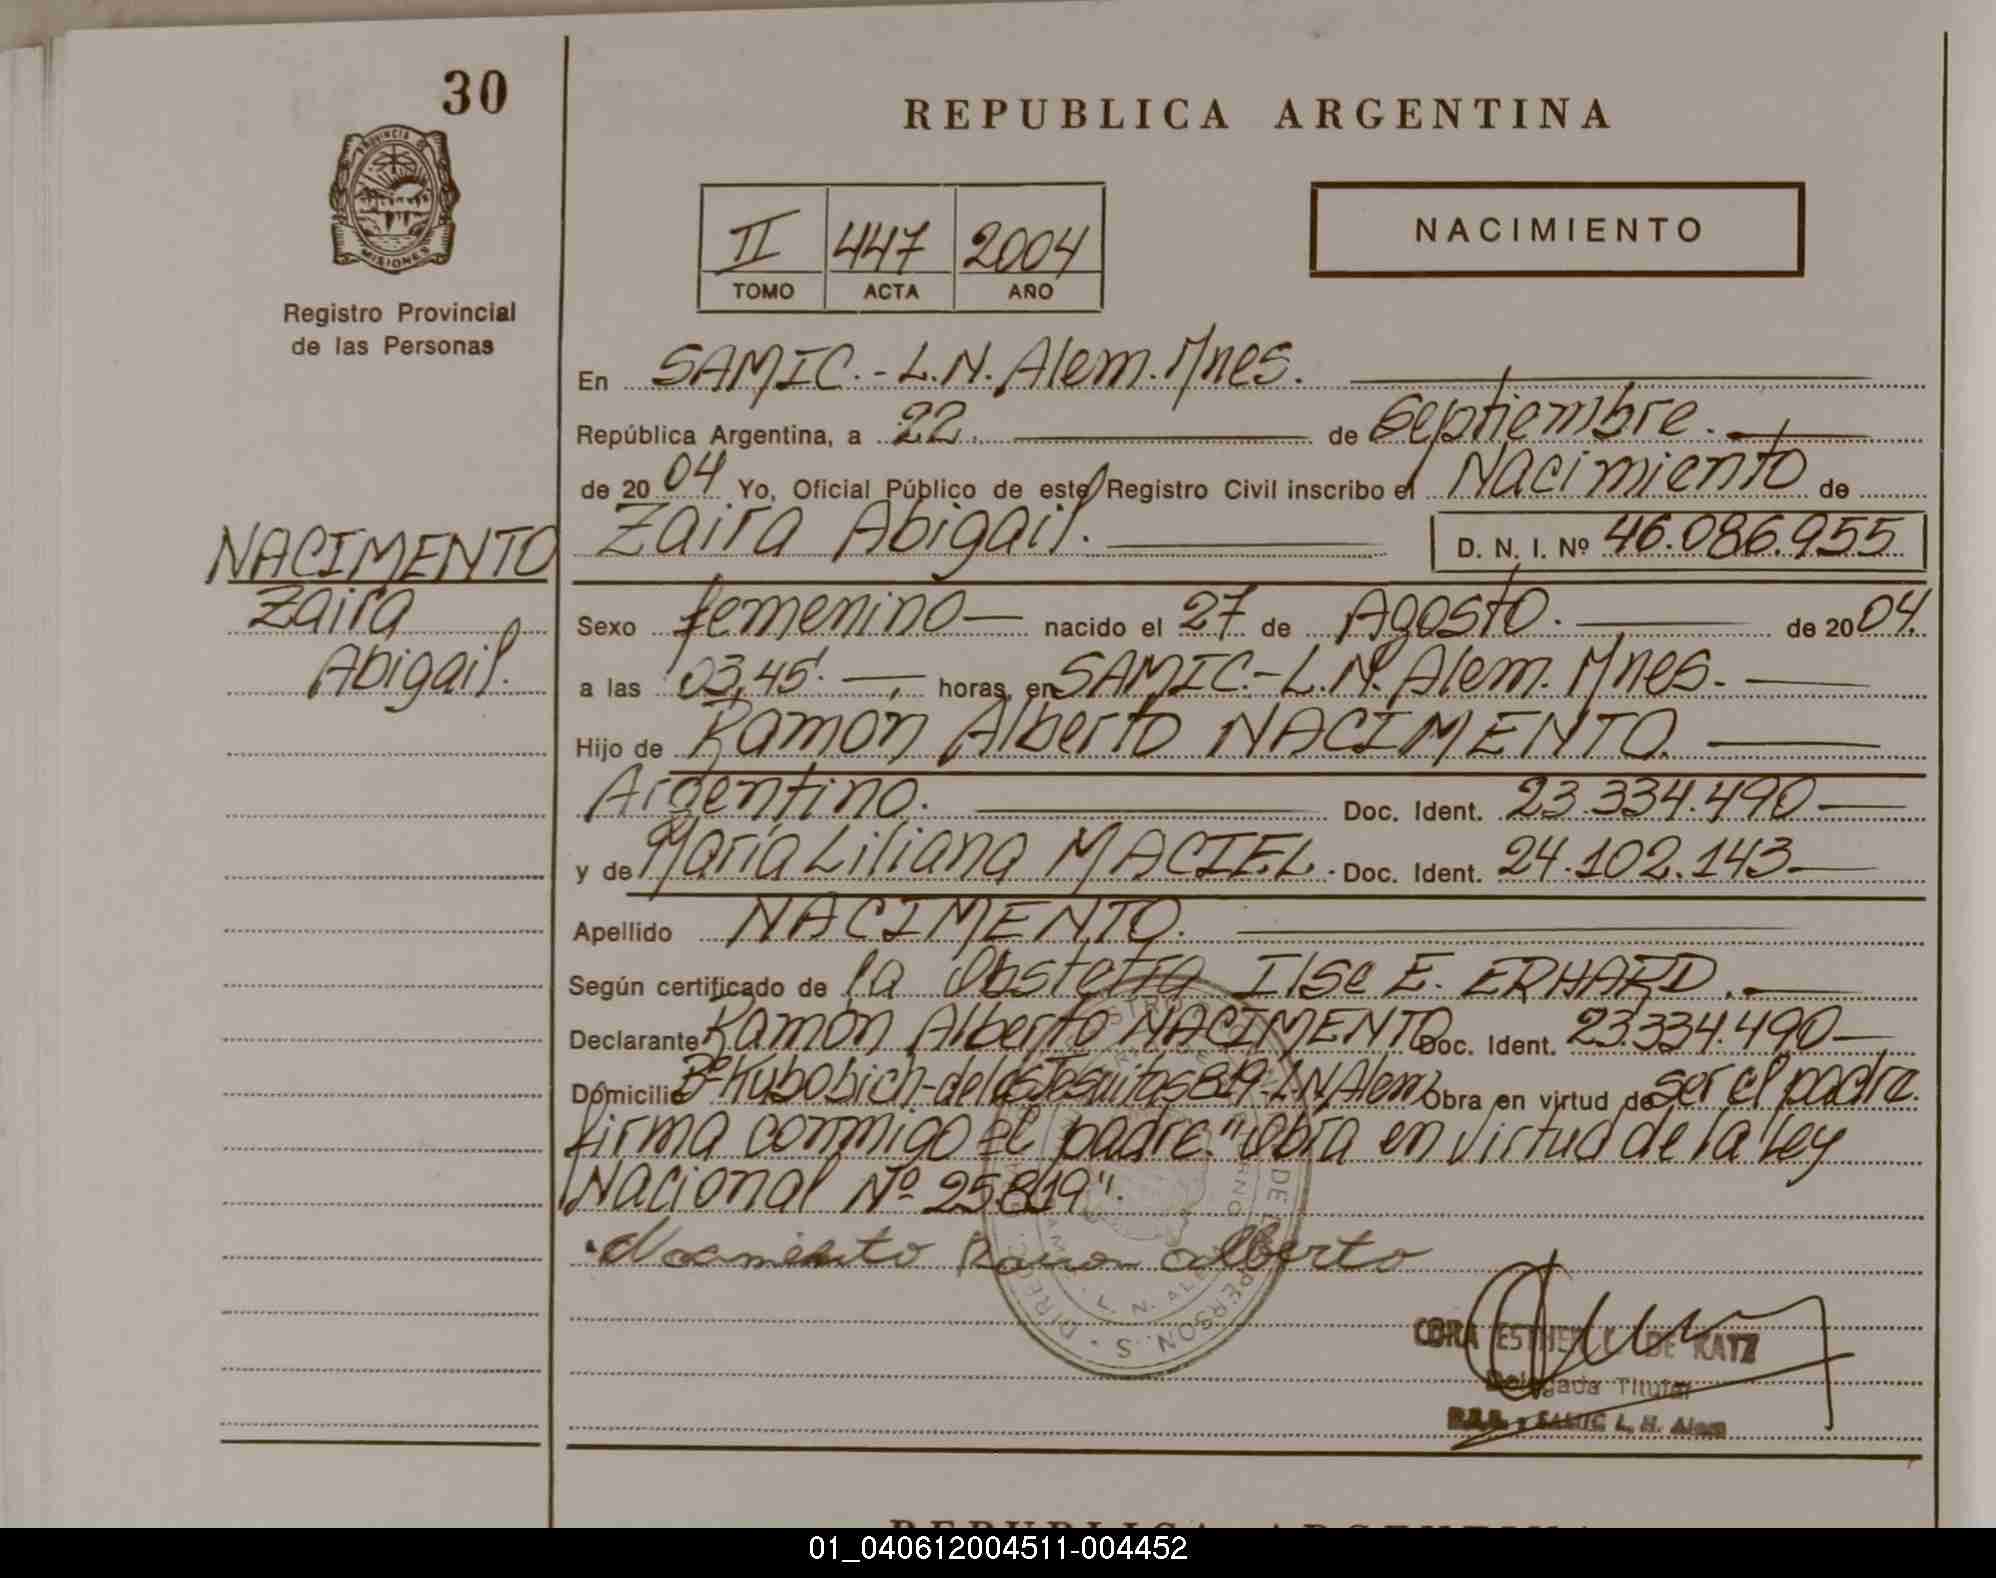 30
REPUBLICA ARGENTINA
PROVINCIA DE
MISIONES
Registro Provincial
de las Personas
II 447 2004
TOMO ACTA AÑO
NACIMIENTO
En SAMIC.-L.N.Alem.Mnes.
República Argentina, a 22. de Septiembre.
de 2004 Yo, Oficial Público de este Registro Civil inscribo el Nacimiento de
Zaira Abigail. D. N. I. Nº 46.086.955
NACIMENTO
Zaira
Abigail.
Sexo femenino nacido el 27 de Agosto. de 2004.
a las 03,45'. horas, en SAMIC.-L.N.Alem.Mnes.
Hijo de Ramón Alberto NACIMENTO.
Argentino. Doc. Ident. 23.334.490
y de María Liliana MACIEL. Doc. Ident. 24.102.143
Apellido NACIMENTO.
Según certificado de la Obstetra Ilse E. ERHARD.
Declarante Ramón Alberto NACIMENTO Doc. Ident. 23.334.490
Domicilio Bº Kubobich-de los Jesuitas 819-L.N.Alem Obra en virtud de ser el padre.
firma conmigo el padre."Obra en virtud de la Ley
Nacional Nº 25.819".
Nacimento Ramon Alberto
CORA ESTHER DE KATZ
Delegada Titular
SAMIC L. N. Alem
REPUBLICA ARGENTINA
01_040612004511-004452